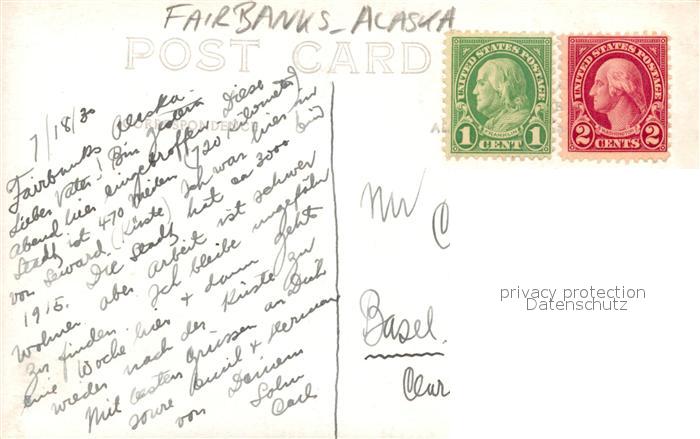 FAIRBANKS - ALASKA
POST CARD
CORRESPONDENCE
7/18/30
Fairbanks Alaska.
Lieber Vater! Bin gestern
Abend hier eingetroffen. Diese
Stadt ist 470 Meilen (720 Kilometer)
von Seward (Küste) Ich war hier in
1915. Die Stadt hat ca 3000
Wohner. aber Arbeit ist schwer
zu finden. Ich bleibe ungefähr
eine Woche hier & dann gehts
wieder nach der Küste zur
Mit besten Grüssen an Dich
sowie &
von Deinem
Sohn
Carl
UNITED STATES POSTAGE
FRANKLIN
1 CENT 1
UNITED STATES POSTAGE
WASHINGTON
2 CENTS 2
Mr C
Basel.
privacy protection
Datenschutz